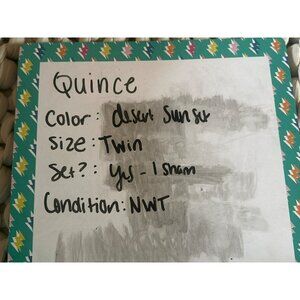 Quince
Color: desert Sunset
Size: Twin
Set?: Yes - 1 sham
Condition: NWT